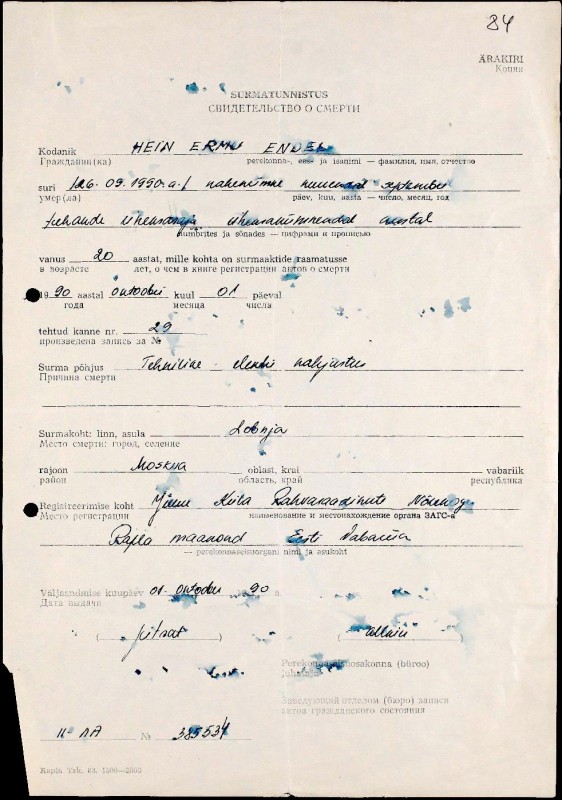 84
ÄRAKIRI
Копия
SURMATUNNISTUS
СВИДЕТЕЛЬСТВО О СМЕРТИ
Kodanik HEIN ERMO ENDEL
Гражданин(ка) perekonna-, ees- ja isanimi — фамилия, имя, отчество
suri /26. 09. 1990. a./ kahekümne kuuendal septembri
умер(ла) päev, kuu, aasta — число, месяц, год
tuhande üheksasaja üheksakümnendal aastal
numbrites ja sõnades — цифрами и прописью
vanus 20 aastat, mille kohta on surmaaktide raamatusse
в возрасте лет, о чем в книге регистрации актов о смерти
1990 aastal oktoobri kuul 01 päeval
года месяца числа
tehtud kanne nr. 29
произведена запись за №
Surma põhjus Tehniline elektri kahjustus
Причина смерти
Surmakoht: linn, asula Lobnja
Место смерти: город, селение
rajoon Moskva oblast, krai vabariik
район область, край республика
Registreerimise koht Küla Rahvasaadikute Nõukogu
Место регистрации наименование и местонахождение органа ЗАГС-а
Rapla maakond Eesti Vabariik
— perekonnaseisuorgani nimi ja asukoht
Väljaandmise kuupäev 01. oktoober 1990 a.
Дата выдачи
( pitsat ) ( allkiri )
Perekonnaseisuosakonna (büroo)
juhataja
Заведующий отделом (бюро) записи
актов гражданского состояния
II-ЛА № 385534
Rapla Trk. 64. 1500—2000